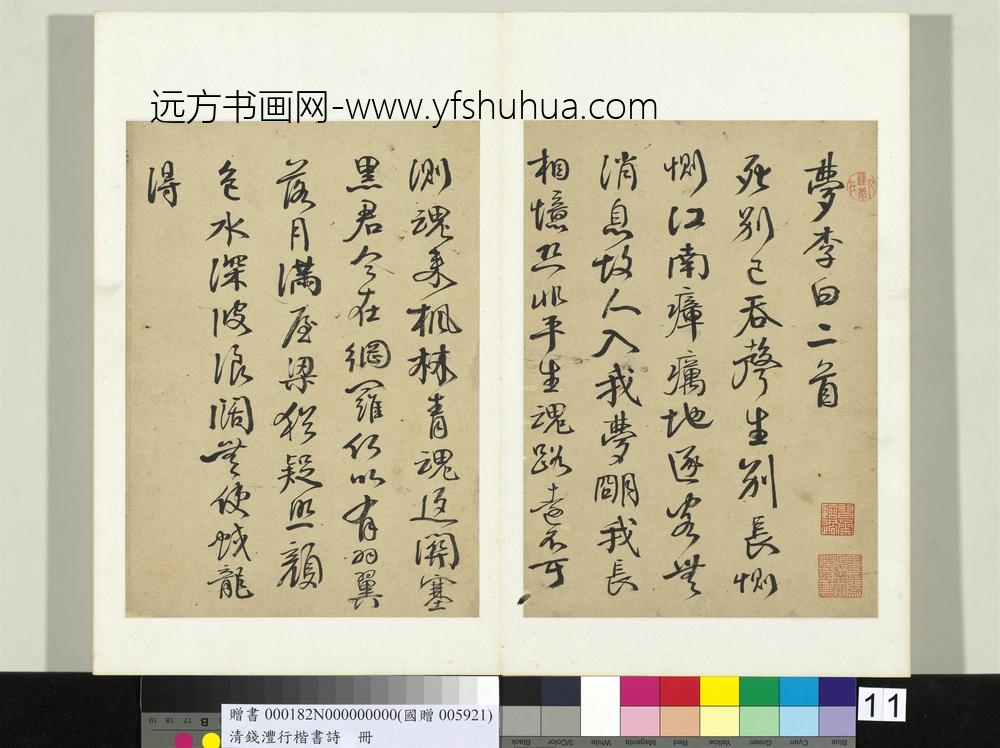 远方书画网-www.yfshuhua.com
夢李白二首
死别已吞聲生别長惻
惻江南瘴癘地逐客無
消息故人入我夢明我長
相憶恐非平生魂路遠不可
測魂来楓林青魂返關塞
黑君今在網羅何以有羽翼
落月滿屋梁猶疑照顏
色水深波浪闊無使蛟龍
得
11
贈書 000182N000000000(國贈 005921)
清錢灃行楷書詩 冊
19 18 17 16 B
Black
3/Color
White
Magenta
Red
Yellow
Green
Cyan
Blue